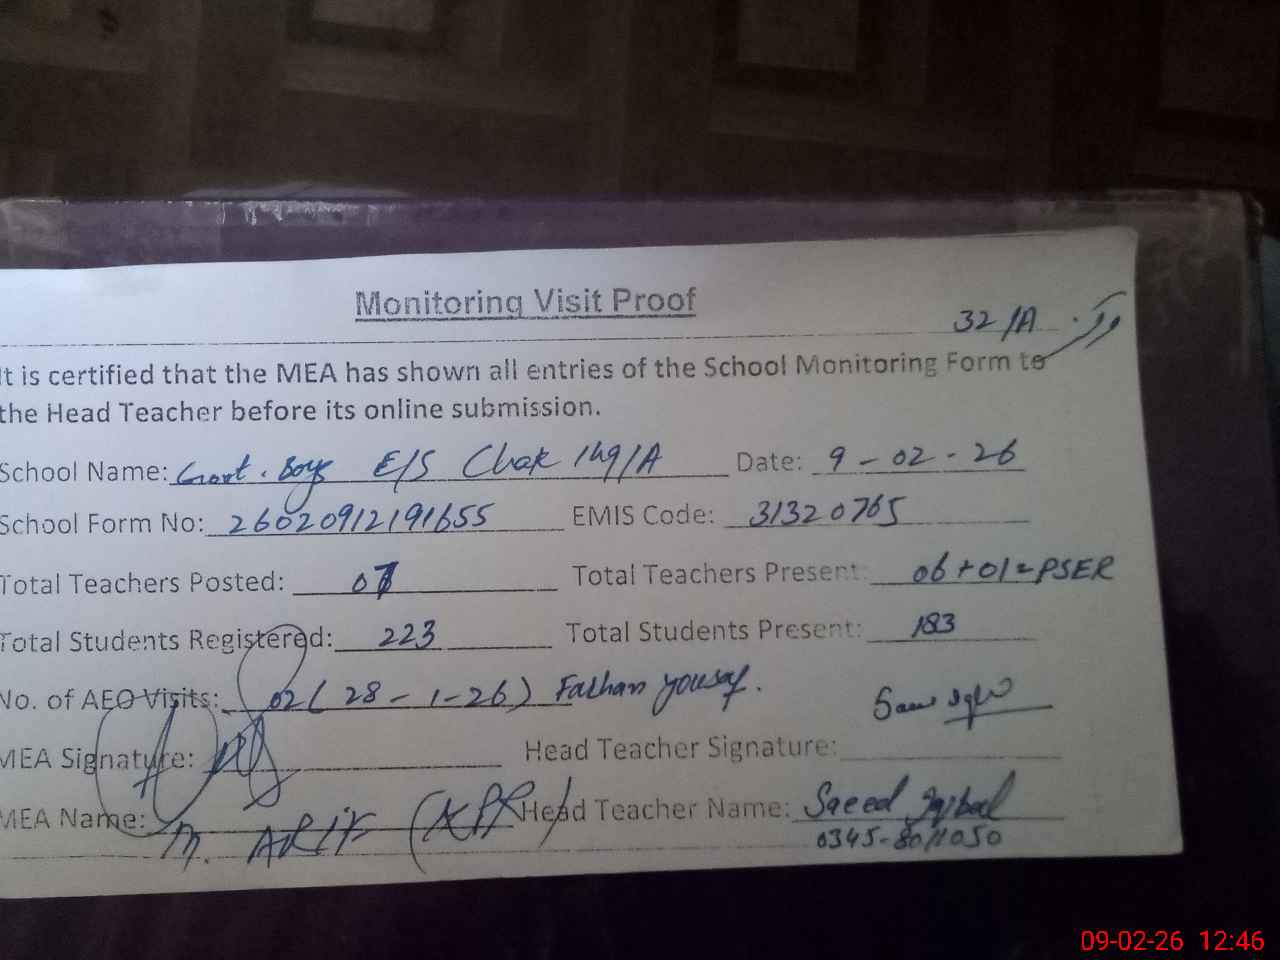 Monitoring Visit Proof
32/A
It is certified that the MEA has shown all entries of the School Monitoring Form to
the Head Teacher before its online submission.
School Name: Govt. Boys E/S Chak 149/A Date: 9-02-26
School Form No: 26020912191655 EMIS Code: 31320765
Total Teachers Posted: 07 Total Teachers Present: 06+01=PSER
Total Students Registered: 223 Total Students Present: 183
No. of AEO Visits: 02 (28-1-26) Farhan yousaf.
MEA Signature: Head Teacher Signature:
MEA Name: M. ARIF Head Teacher Name: Saeed Iqbal
0345-8011050
09-02-26 12:46